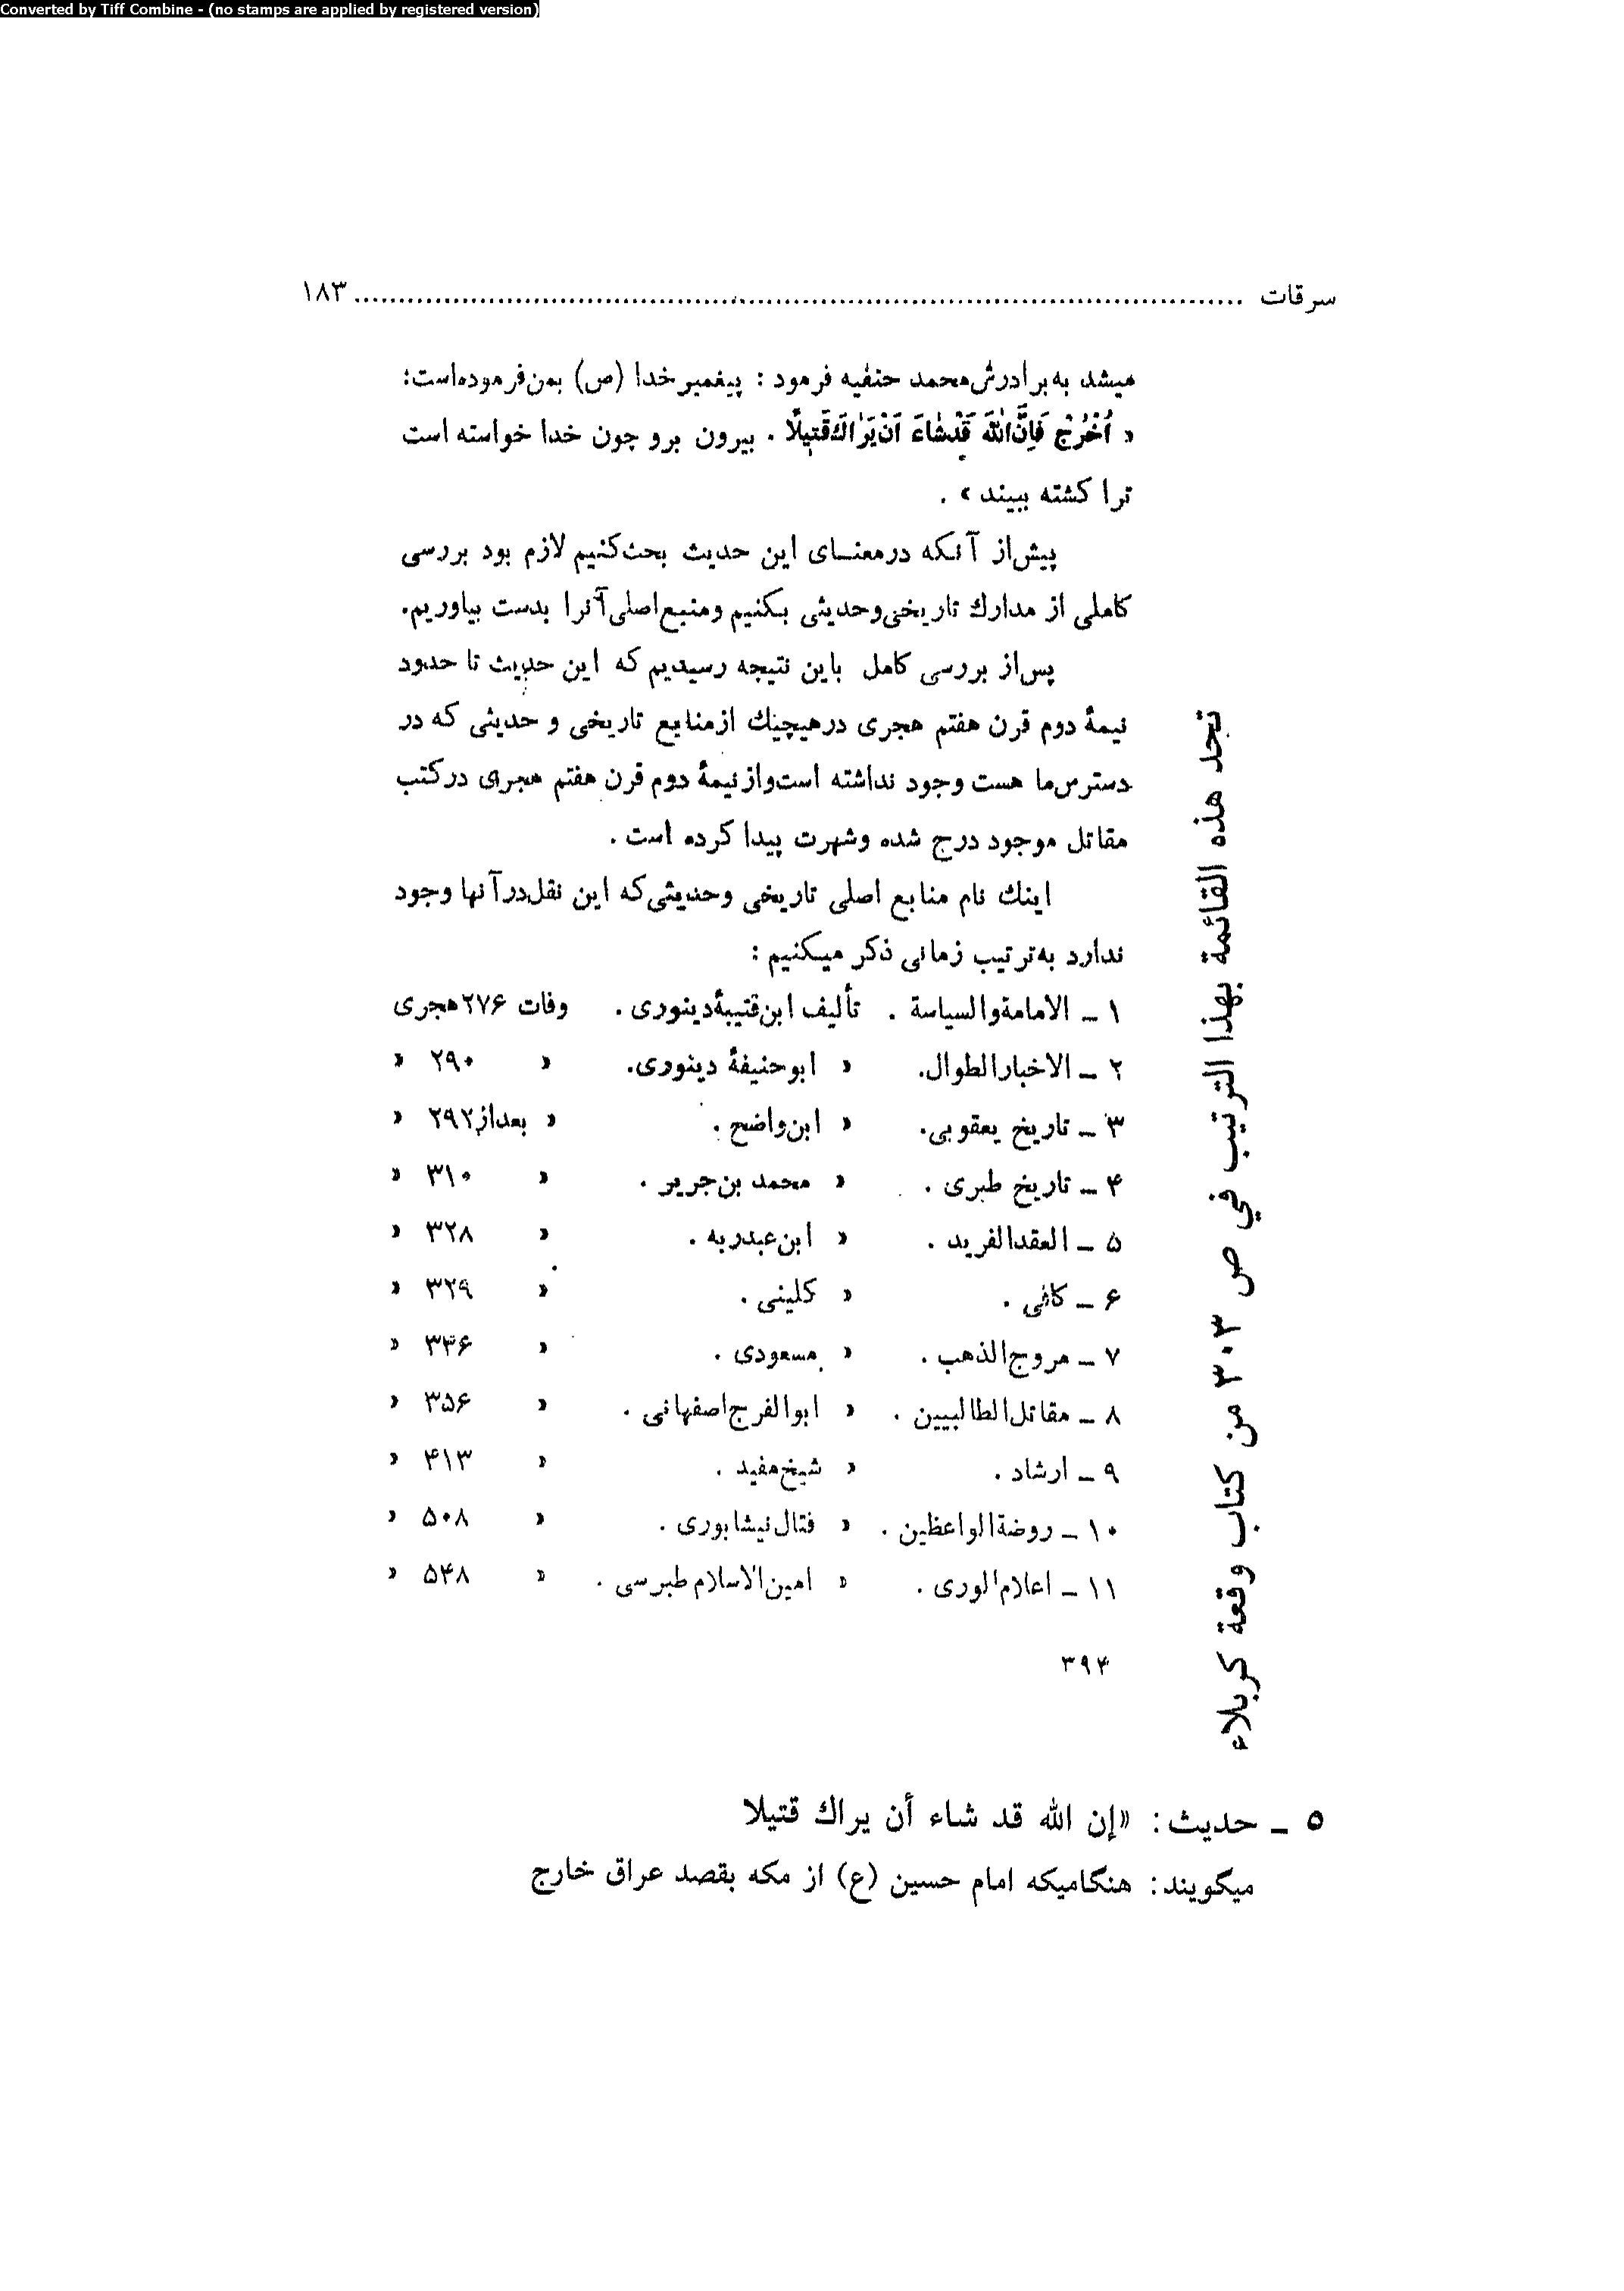 Converted by Tiff Combine - (no stamps are applied by registered version)
سرقات ........................................ ۱۸۳
میشد به‌برادرش‌محمد حنفیه فرمود : پیغمبرخدا (ص) بمن‌فرموده‌است:
« اُخْرُجْ فَاِنَّ‌اللهَ قَدْشاءَ اَنْ‌یَراكَ‌قَتیلًا . بیرون برو چون خدا خواسته است
ترا كشته ببیند » .
پیش‌از آنكه درمعنـای این حدیث بحث‌كنیم لازم بود بررسی
كاملی از مدارك تاریخی‌وحدیثی بكنیم ومنبع‌اصلی‌آنرا بدست بیاوریم.
پس‌از بررسی كامل باین نتیجه رسیدیم كه این حدیث تا حدود
نیمهٔ دوم قرن هفتم هجری درهیچیك ازمنابع تاریخی و حدیثی كه در
دسترس‌ما هست وجود نداشته است‌وازنیمهٔ دوم قرن هفتم هجری دركتب
مقاتل موجود درج شده وشهرت پیدا كرده است .
اینك نام منابع اصلی تاریخی وحدیثی‌كه این نقل‌درآنها وجود
ندارد به‌ترتیب زمانی ذكر میكنیم :
۱ ـ الامامةوالسیاسة . تألیف ابن‌قتیبهٔ‌دینوری . وفات ۲۷۶هجری
۲ ـ الاخبارالطوال. » ابوحنیفهٔ دینوری. » ۲۹۰ »
۳ ـ تاریخ یعقوبی. » ابن‌واضح . » بعداز۲۹۲ »
۴ ـ تاریخ طبری . » محمد بن‌جریر . » ۳۱۰ »
۵ ـ العقدالفرید . » ابن‌عبدربه . » ۳۲۸ »
۶ ـ كافی . » كلینی . » ۳۲۹ »
۷ ـ مروج‌الذهب . » مسعودی . » ۳۳۶ »
۸ ـ مقاتل‌الطالبیین . » ابوالفرج‌اصفهانی . » ۳۵۶ »
۹ ـ ارشاد . » شیخ‌مفید . » ۴۱۳ »
۱۰ ـ روضةالواعظین . » فتال‌نیشابوری . » ۵۰۸ »
۱۱ ـ اعلام‌الوری . » امین‌الاسلام‌طبرسی . » ۵۴۸ »
۳۹۴
تجد هذه القائمة بهذا الترتيب في ص ۳۰۳ من كتاب وقعة كربلاء
۵ ـ حديث: «إن الله قد شاء أن يراك قتيلا
میگویند: هنگامیکه امام حسین (ع) از مکه بقصد عراق خارج